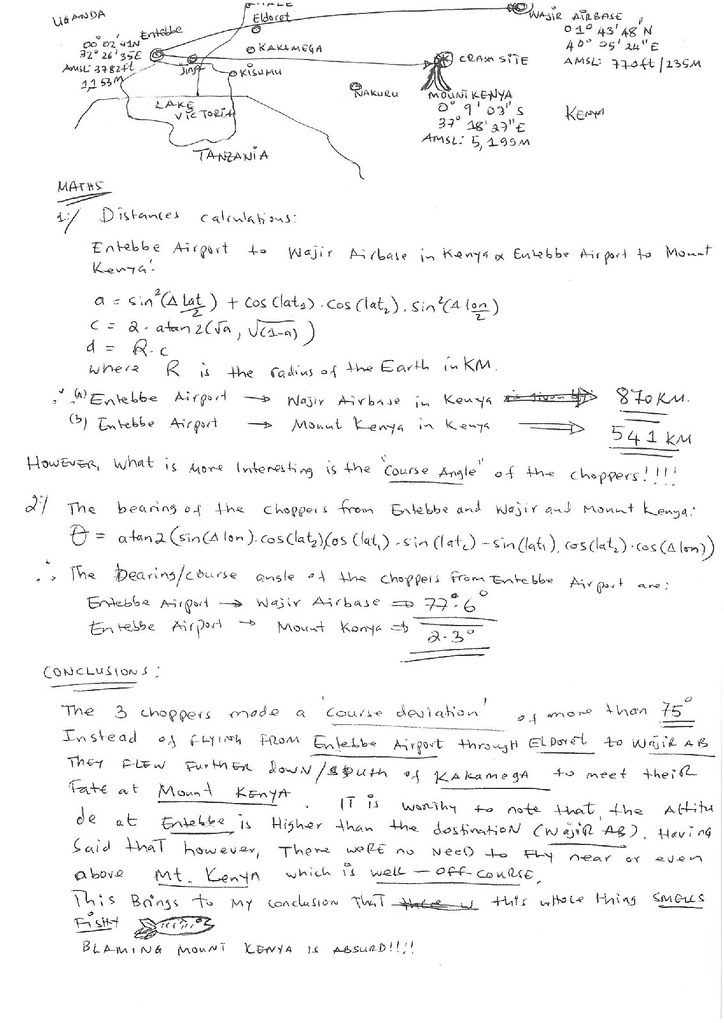 UGANDA
Eldoret
WAJIR AIRBASE
01° 43' 48" N
40° 05' 24" E
AMSL: 770ft/235M
Entebbe
00° 02' 41N
32° 26' 35E
AMSL 3782ft
1,153m
KAKAMEGA
Jinja
KISUMU
CRASH SITE
NAKURU
MOUNT KENYA
0° 9' 03" S
37° 18' 27" E
AMSL: 5,199M
KENYA
LAKE
VICTORIA
TANZANIA
MATHS
1:/ Distances calculations:
Entebbe Airport to Wajir Airbase in Kenya & Entebbe Airport to Mount
Kenya:
a = sin²(Δ Lat/2) + cos(lat₁) · cos(lat₂) . sin²(Δ lon/2)
c = 2 · atan2(√a, √(1-a))
d = R·c
where R is the radius of the Earth in KM.
∴ (a) Entebbe Airport → Wajir Airbase in Kenya ⟹ 870KM.
(b) Entebbe Airport → Mount Kenya in Kenya ⟹ 541 KM
HOWEVER, what is more Interesting is the "Course Angle" of the choppers!!!!
2:/ The bearing of the choppers from Entebbe and Wajir and Mount Kenya:
θ = atan2(sin(Δ lon).cos(lat₂),cos(lat₁) - sin(lat₂) - sin(lat₁), cos(lat₂)·cos(Δlon))
∴ The bearing/course angle of the choppers from Entebbe Airport are:
Entebbe Airport → Wajir Airbase ⇒ 77°.6°
Entebbe Airport → Mount Kenya ⇒ 2.3°
CONCLUSIONS:
The 3 choppers made a 'course deviation' of more than 75°
Instead of FLYING FROM Entebbe Airport through ELDORET to WAJIR AB
THEY FLEW FURTHER DOWN/SOUTH of KAKAMEGA to meet theiR
Fate at MOUNT KENYA. IT is worthy to note that the Altitu
de at Entebbe is Higher than the destination (WAJIR AB). Having
Said that however, There were no need to fly near or even
above Mt. Kenya which is well - OFF-COURSE.
This Brings to My conclusion That this whole thing SMELLS
FISHY
BLAMING MOUNT KENYA IS ABSURD!!!!